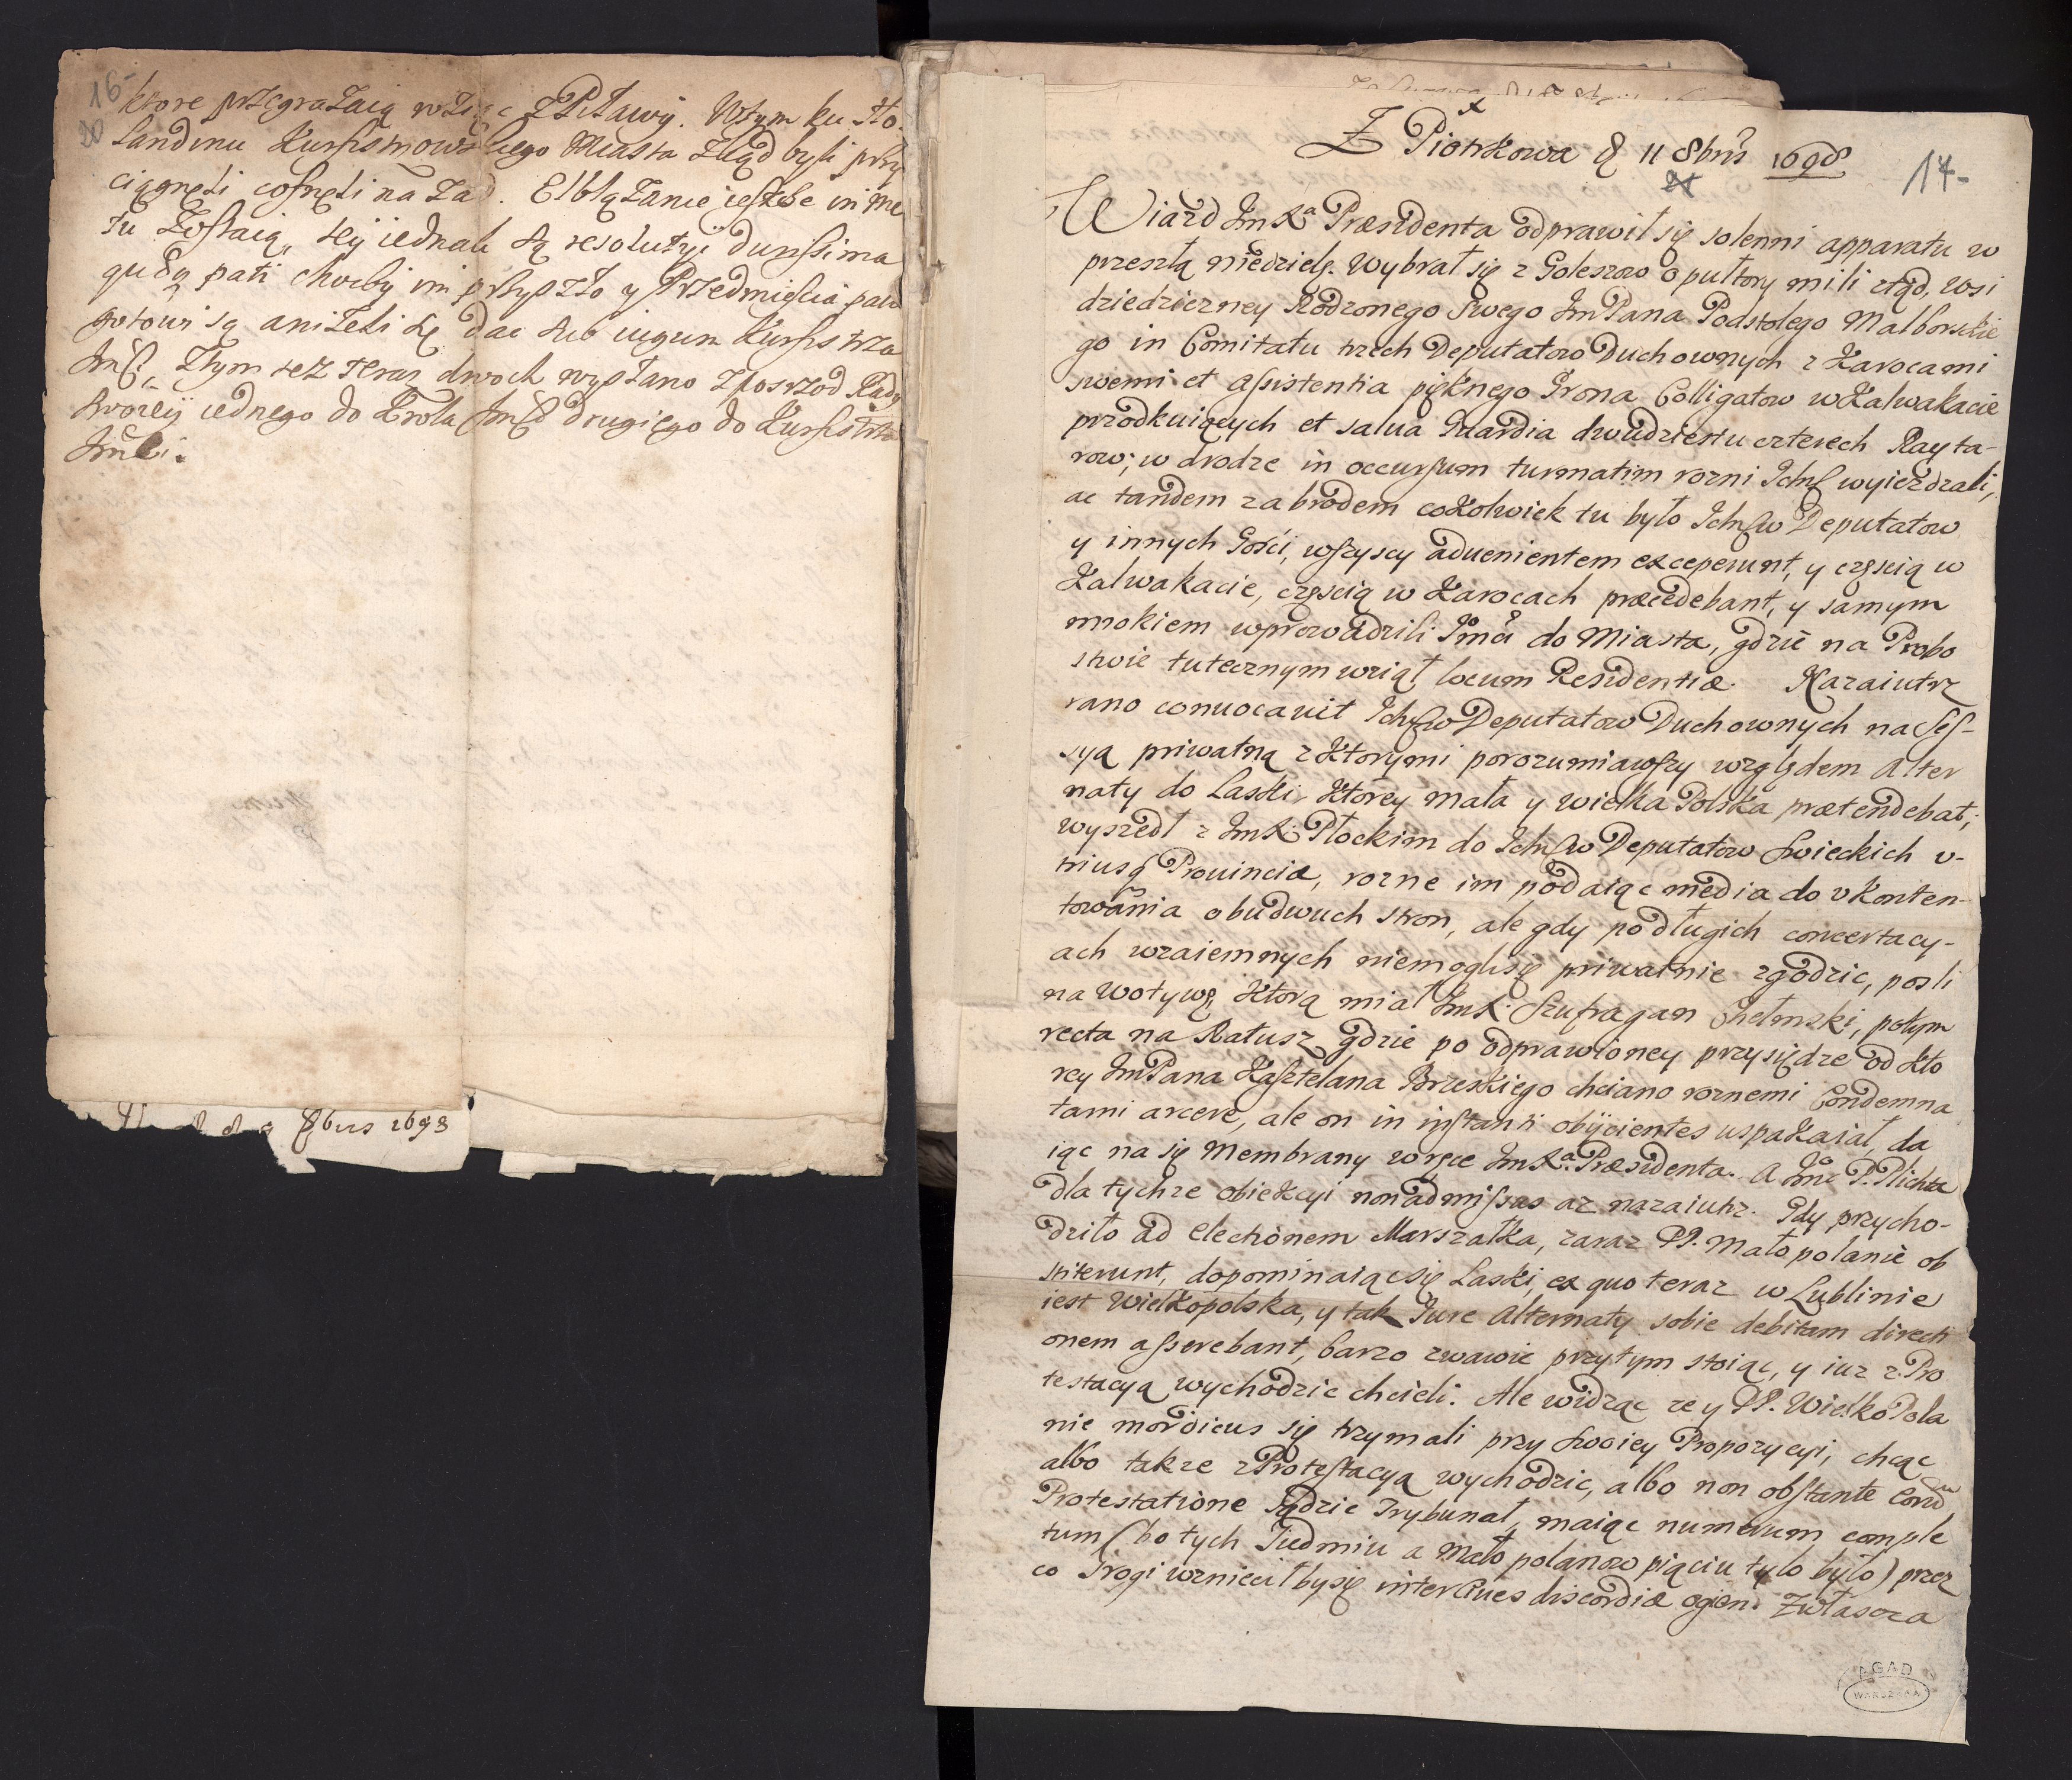 16-
20
ktore przegrażaią wziąc z Piławy. Wtym ku Ho-
landinu Kurfistrowskiego Miasta zkąd byli przy
ciągnęli cofnęli na zad. Elblążanie ieszcze in me
tu zostaią, tey iednak są resolutyi durissima
quæq pati choćby im przyszło y Przedmieścia
gotowi są aniżeli się dac sub iugum Kurfistrza
Jmści. Ztym też teraz dwoch wysłano zposrzod Rady
swoiey iednego do Krola Jmści drugiego do Kurfistrza
Jmści.
8bris 1698
Z Piotrkowa d 11 8bris 1698
14-
Wiazd JmXa Præsidenta odprawił się solenni apparatu w
przeszłą niedzielę. Wybrał się z Goleszow o pułtory mili ztąd, wsi
dziedziczney Rodzonego swego JmPana Podstolego Malborskie
go in Comitatu trzech Deputatow Duchownych z Karocami
swemi et assistentia pięknego Grona Colligatow w Kalwakacie
przodkuiących et salua Guardia dwudziestu czterech Rayta-
row; w drodze in occursum turmatim rozni Ichmść wyieżdzali,
ac tandem za brodem cokolwiek tu było Ichmściow Deputatow
y innych Gości, wszyscy aduenientem exceperunt, y częscią w
Kalwakacie, częscią w Karocach præcedebant, y samym
mrokiem wprowadzili Jmci do Miasta, gdzie na Probo
stwie tutecznym wziął locum Residentiæ. Nazaiutrz
rano conuocauit Ichmściow Deputatow Duchownych na Sess-
syą priwatną z ktorymi porozumiawszy względem Alter
naty do Laski, ktorey mała y wielka Polska prætendebat;
wyszedł z JmX. Płockim do Ichmściow Deputatow Swieckich v-
triusq Prouinciæ, rozne im podaiąc media do vkonten-
towania obudwuch stron, ale gdy po długich concertacy-
ach wzaiemnych niemogli się priwatnie zgodzic, posli
na wotywę, ktorą miał JmX. Szufragan Chełmski, potym
recta na Ratusz, gdzie po odprawioney przysiędze od kto
rey JmPana Kasztelana Brzeskiego chciano roznemi Condemna
tami arcere, ale on in instanti obijcientes uspakaiał, da
iąc na się Membrany w ręce JmXa. Præsidenta. A Jmc P. Plichta
dla tychze obiekcyi non admissus az nazaiutrz. Gdy przycho-
dziło ad electionem Marszałka, zaraz PP. Małopolanie ob
stiterunt, dopominaiąc się Laski, ex quo teraz w Lublinie
iest Wielkopolska, y tak Jure Alternaty sobie debitam directi
onem asserebant, barzo zwawie przytym stoiąc, y iuz z Pro
testacyą wychodzic chcieli. Ale widząc ze y PP. WielkoPola
nie mordicus się trzymali przy swoiey Propozycyi, chcąc
albo takze z Protestacyą wychodzic, albo non obstante
Protestatione sądzic Trybunał, maiąc numerum comple
tum (bo tych siedmiu a Małopolanow piąciu tylo było) przez
co srogi wzniecił by się inter Ciues discordiæ ogien. Zwłascza
AGAD
WARSZAWA